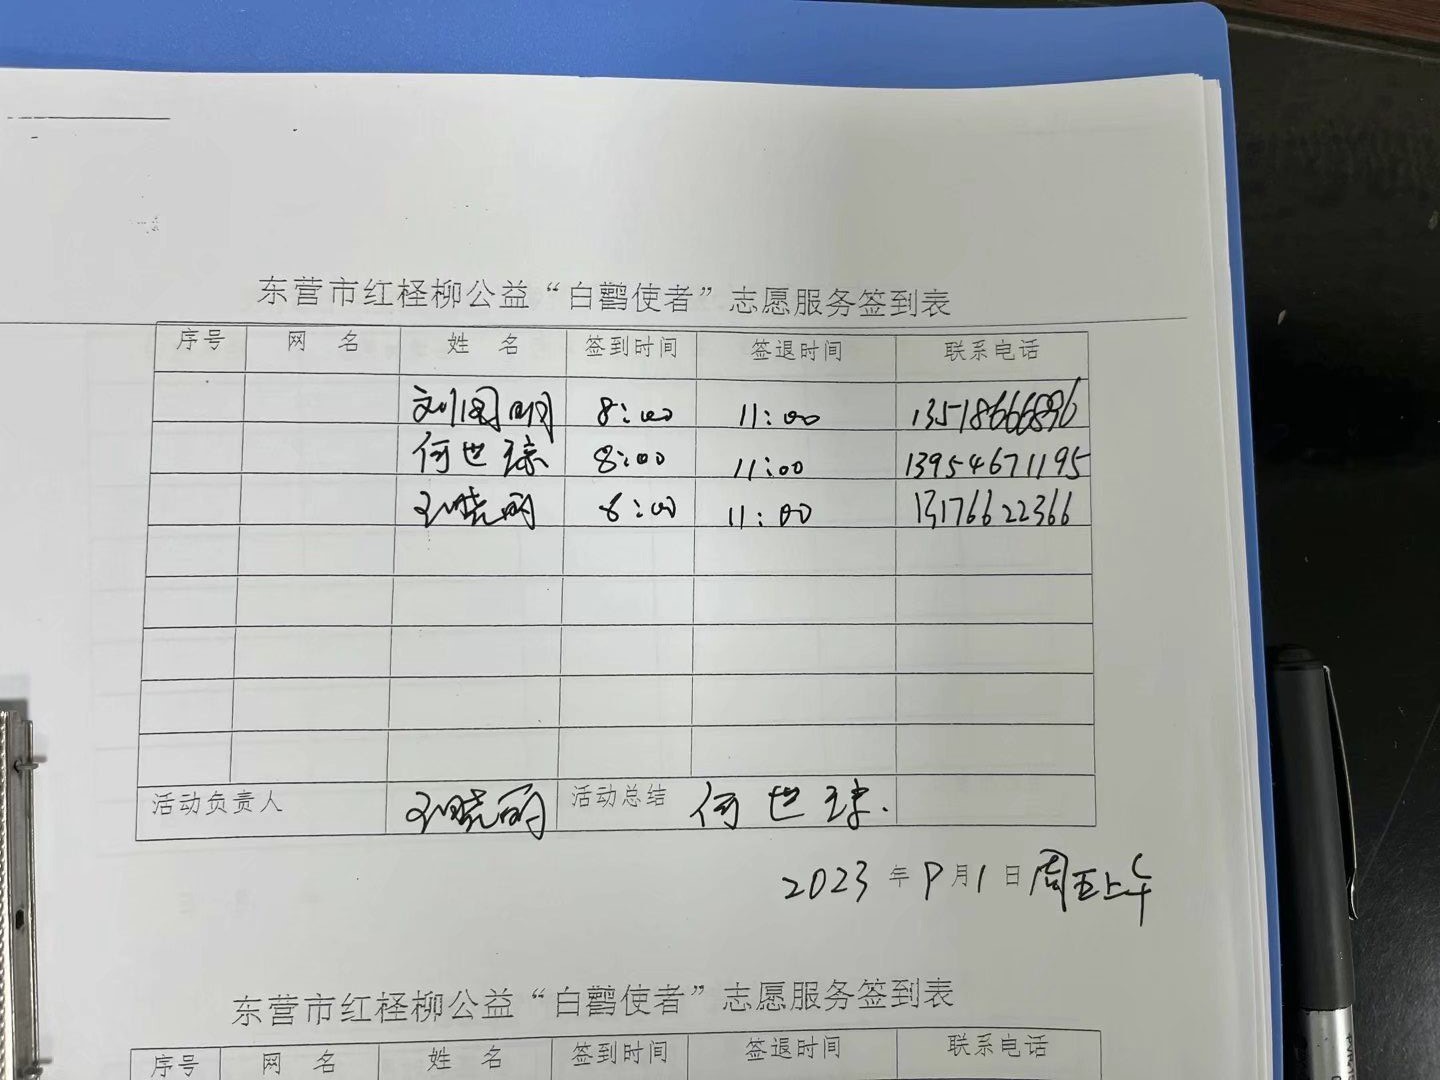 东营市红柽柳公益“白鹳使者”志愿服务签到表
序号 网 名 姓 名 签到时间 签退时间 联系电话
刘国明 8:00 11:00 13518666896
何世琼 8:00 11:00 13954671195
王晓丽 8:00 11:00 13176622366
活动负责人 王晓丽 活动总结 何世琼.
2023 年 9 月 1 日 周五上午
东营市红柽柳公益“白鹳使者”志愿服务签到表
序号 网 名 姓 名 签到时间 签退时间 联系电话